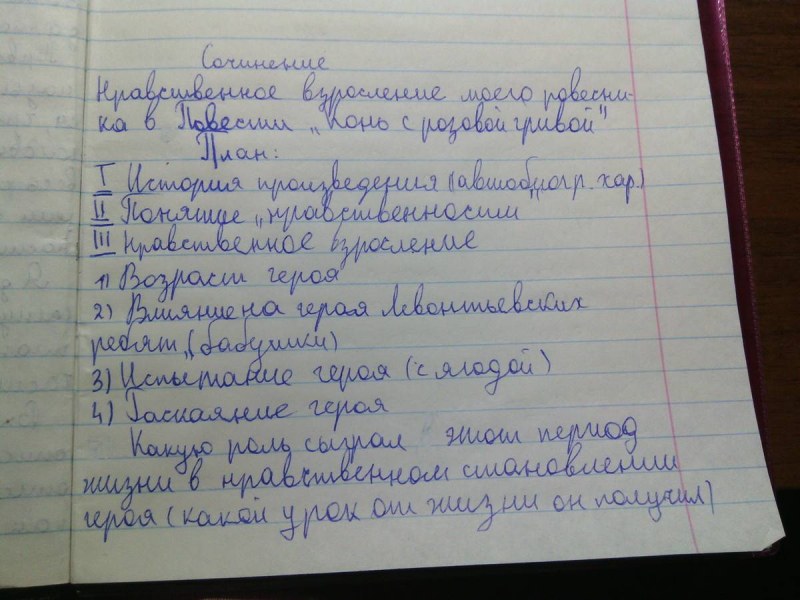 Сочинение
Нравственное взросление моего ровесни-
ка в Повести „Конь с розовой гривой"
План:
I История произведения (автобиогр. хар.)
II Понятие „нравственности
III Нравственное взросление
1) Возраст героя
2) Влияние на героя Левонтьевских
ребят, (бабушки)
3) Испытание героя (с ягодой)
4) Раскаяние героя
Какую роль сыграл этот период
жизни в нравственном становлении
героя (какой урок от жизни он получил)